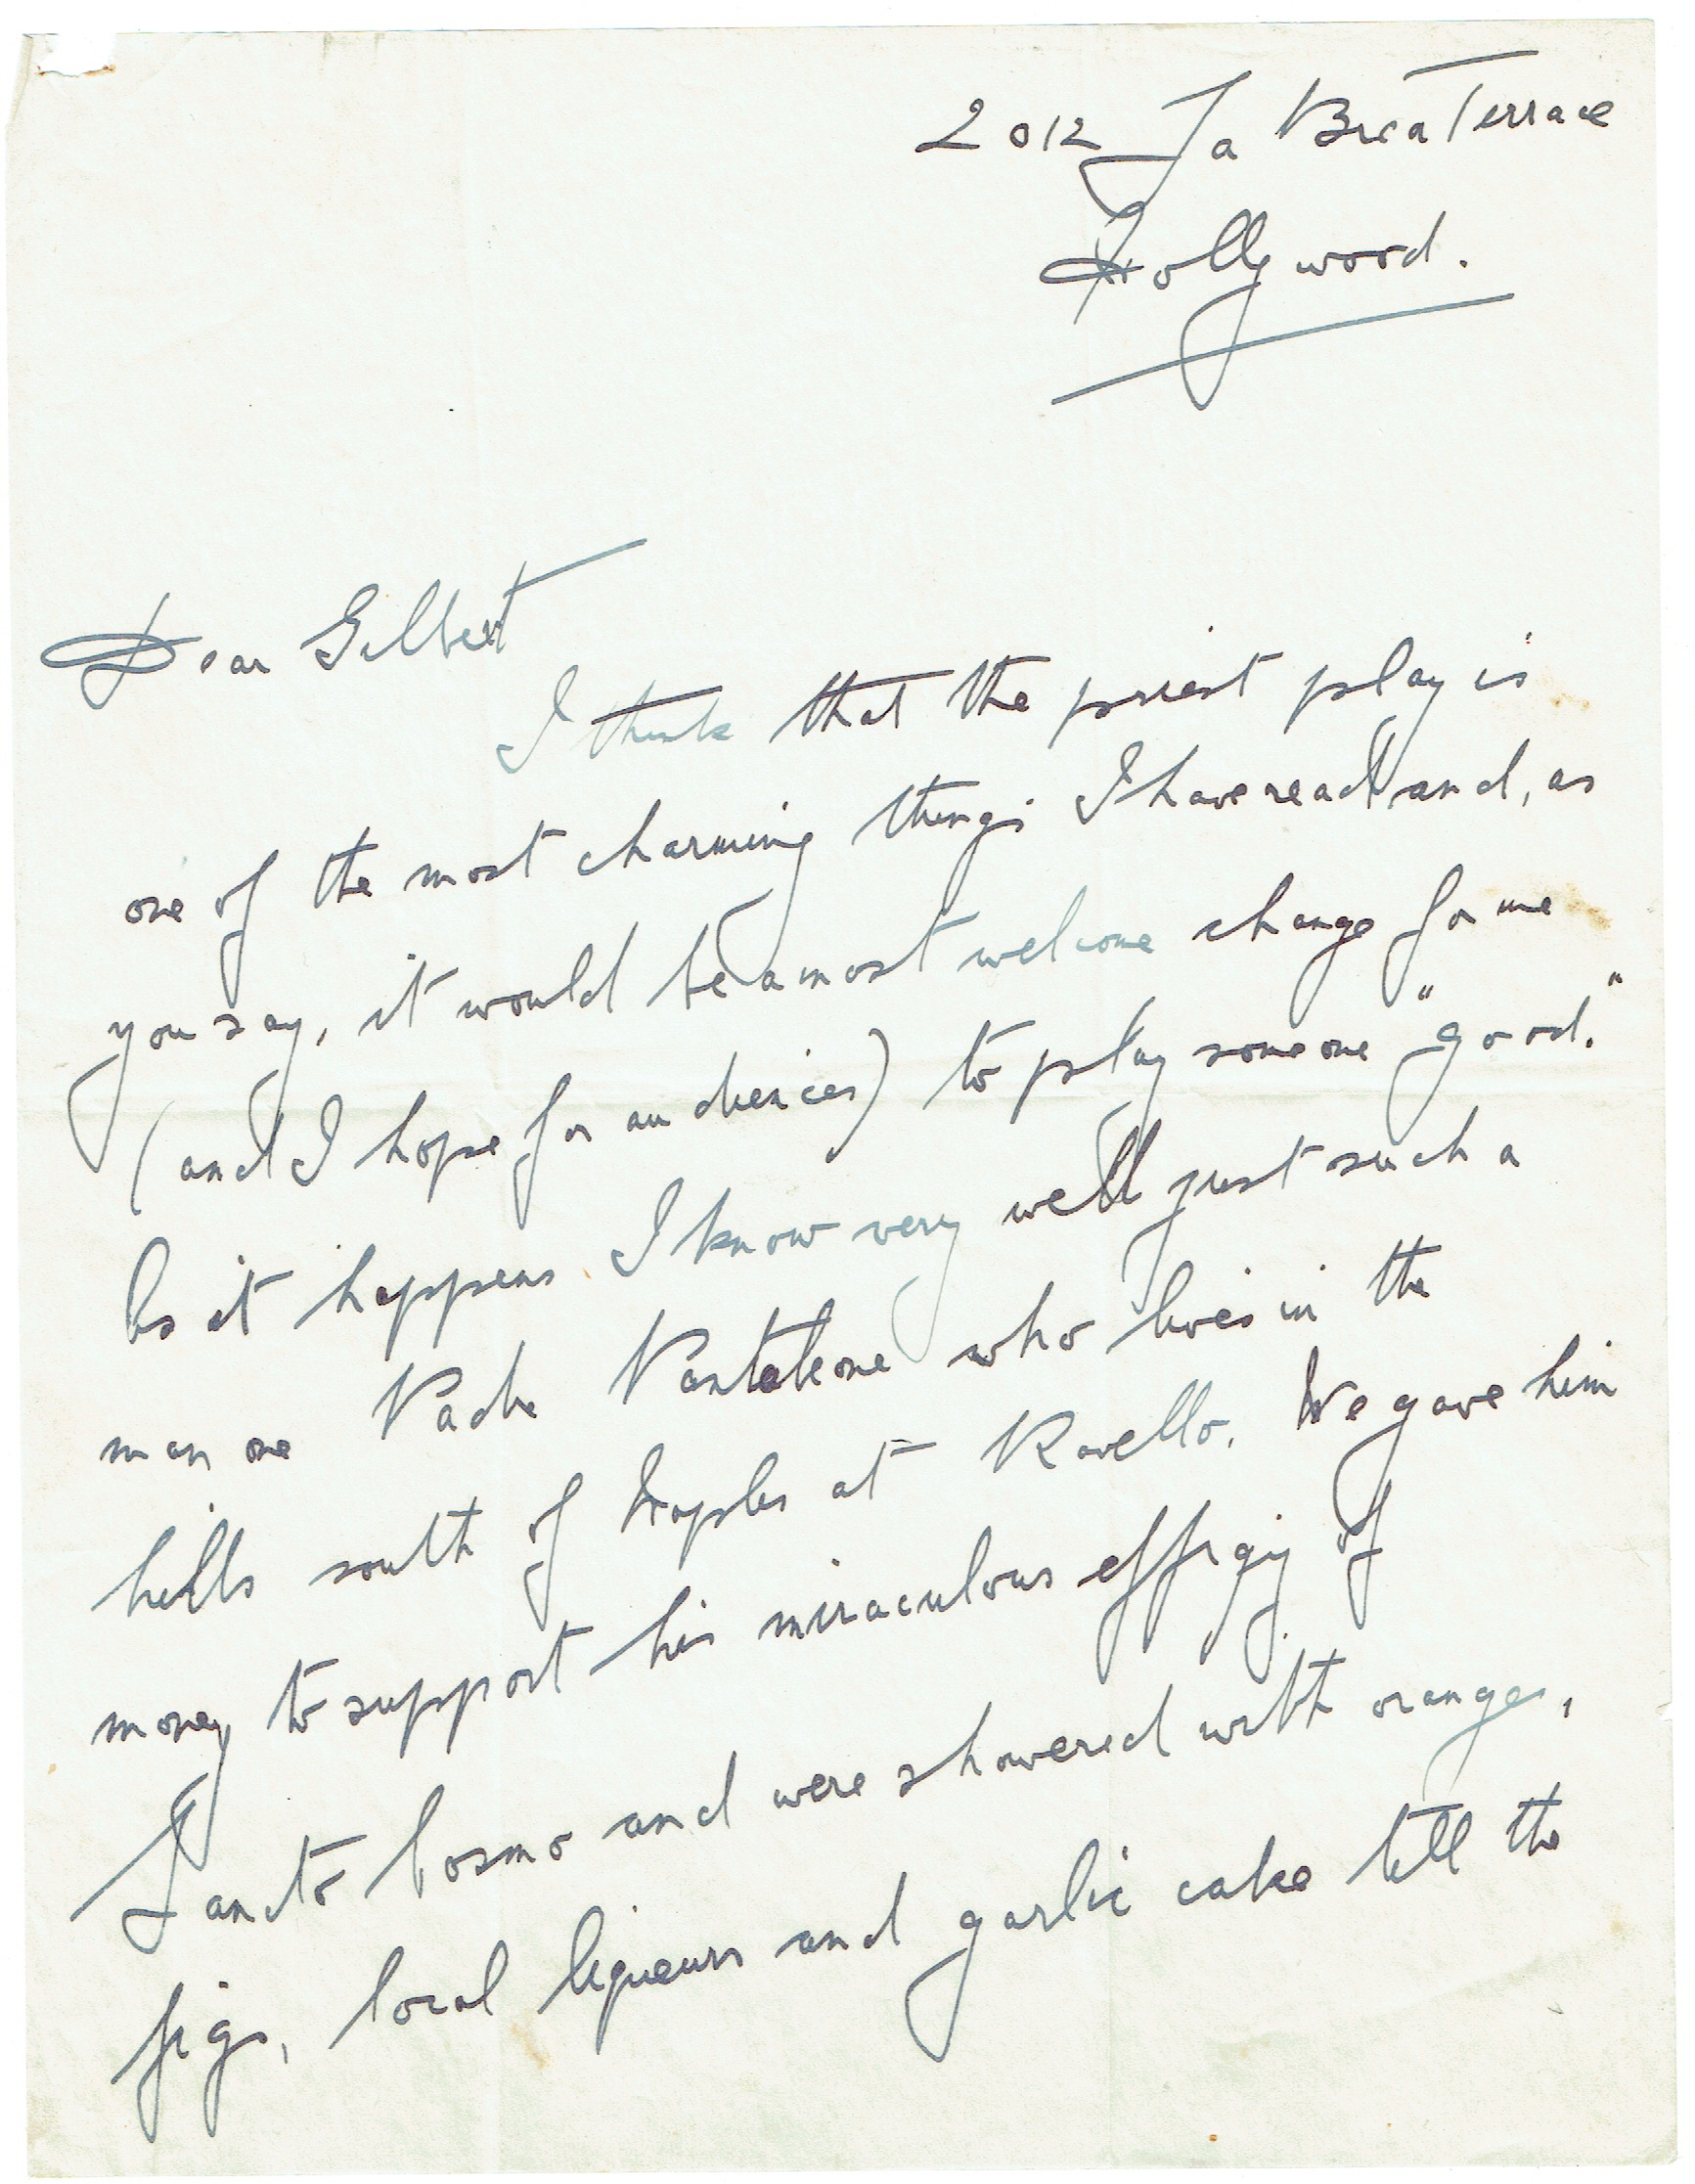 2012 La Brea Terrace
Hollywood.
Dear Gilbert
I think that the priest play is
one of the most charming things I have read and, as
you say, it would be a most welcome change for me
(and I hope for audiences) to play someone "good."
As it happens I know very well just such a
man one Padre Pantaleone who lives in the
hills south of Naples at Ravello. We gave him
money to support his miraculous effigy of
Santo Cosmo and were showered with oranges,
figs, local liqueurs and garlic cake till the